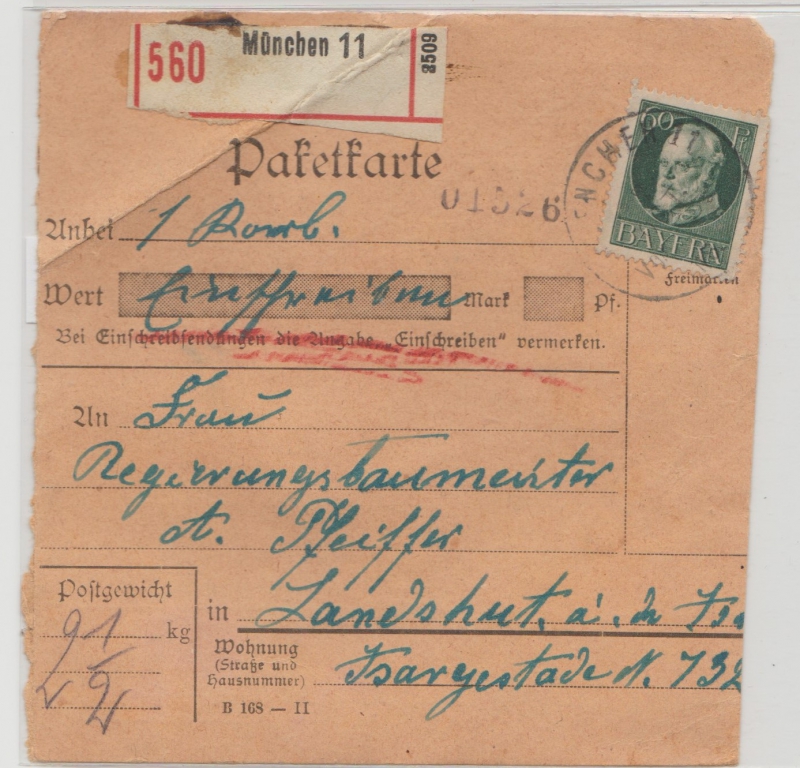 560 München 11 8509
Paketkarte
01526
60 Pf
BAYERN
NCHEN
Anbei 1 Korb.
Wert Einschreiben Mark Pf.
Freimarken
Bei Einschreibsendungen die Angabe „Einschreiben" vermerken.
An Frau
Regierungsbaumeister
A. Pfeiffer
Postgewicht
2 1/2 kg
in Landshut. a. d. Isa
Wohnung
(Straße und
Hausnummer) Isargestade N. 732
B 168 — II